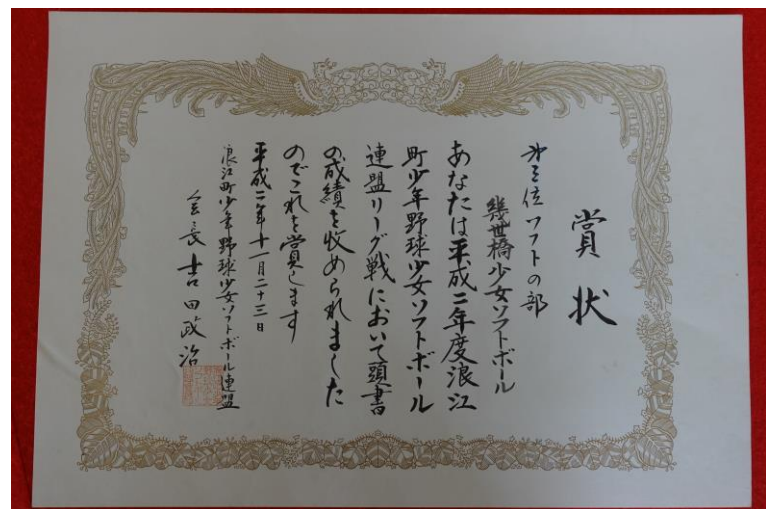 賞状
第三位ソフトの部
幾世橋少女ソフトボール
あなたは平成二年度浪江
町少年野球少女ソフトボール
連盟リーグ戦において頭書
の成績を収められました
のでこれを賞します
平成二年十一月二十三日
浪江町少年野球少女ソフトボール連盟
会長 吉田政治